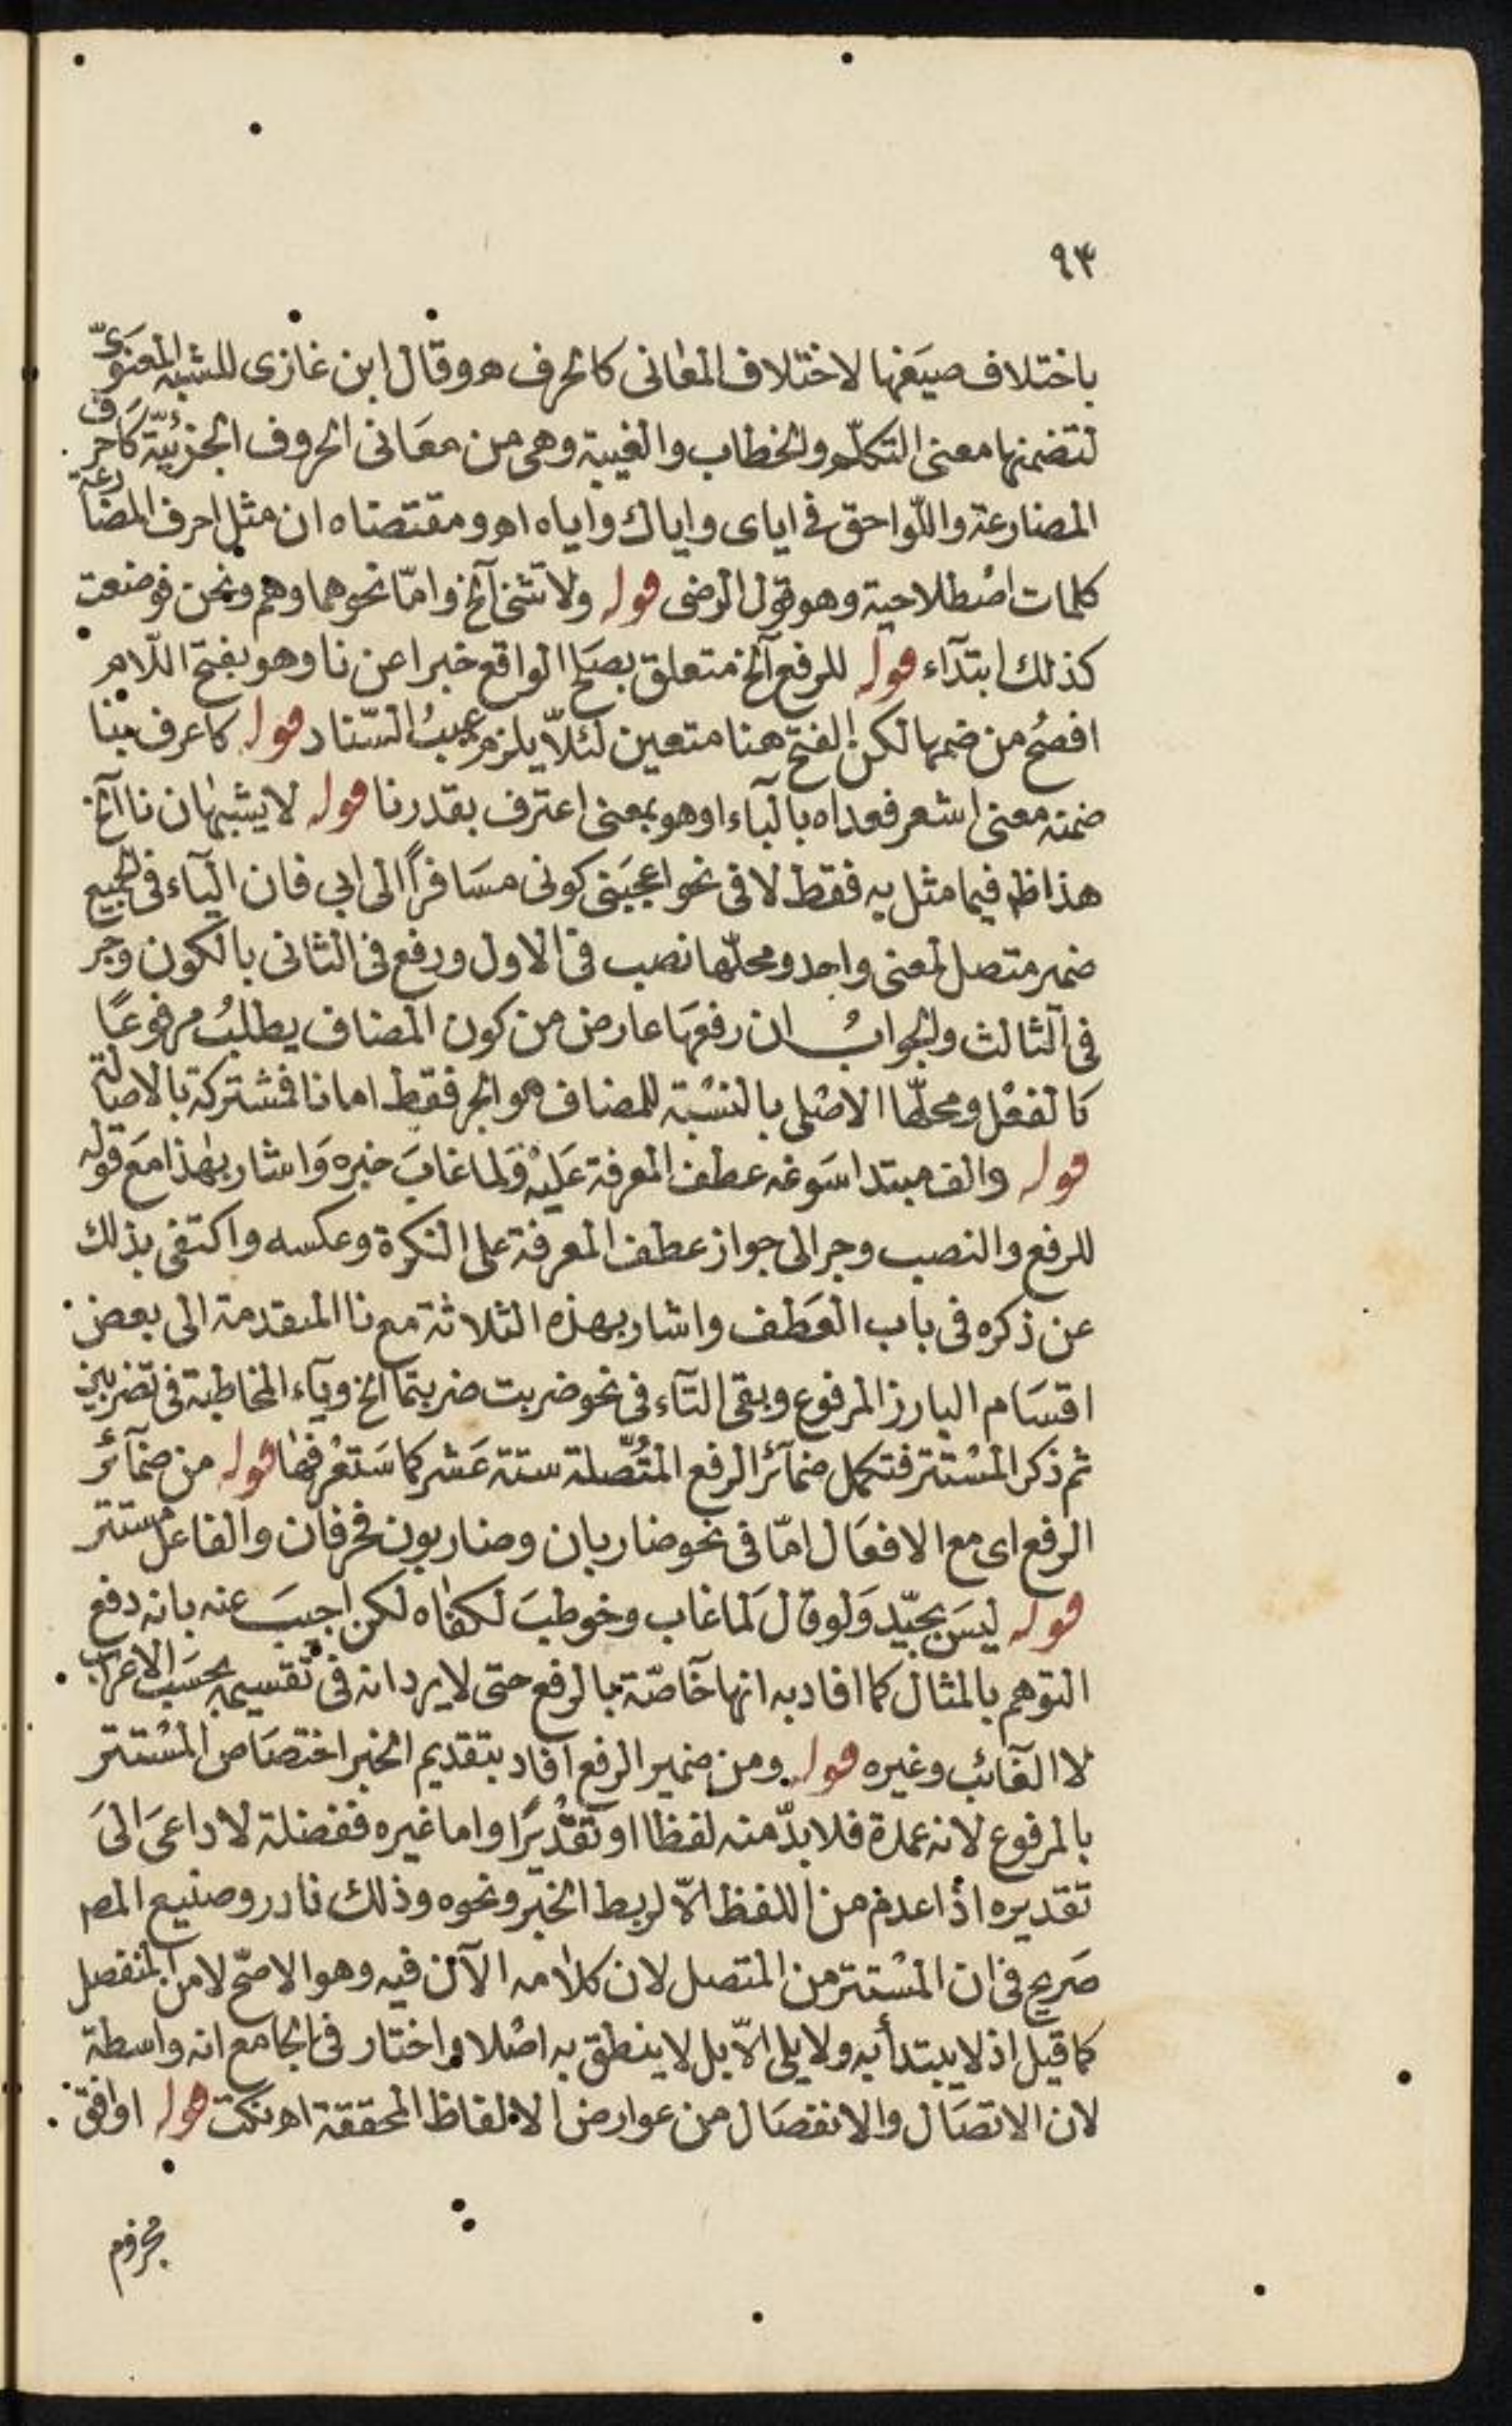 ٩٣
باختلاف صيغها لاختلاف المعانى كالحرف هـ وقال ابن غازى للشبه المعنوىّ
لتضمنها معنى التكلّم والخطاب والغيبة وهى من معَانى الحروف الجزئيّة كاحرف
المضارعة واللّواحق فى اياى واياك واياه اهـ ومقتضاه ان مثل احرف المضارعة
كلمات اصْطلاحية وهو قول الرضى قوله ولا تثنى آلخ وامّا نحو هما وهم ونحن فوضعت
كذلك ابتدآء قوله للرفع آلخ متعلق بصَلح الواقع خبرا عن نا وهو بفتح اللّام
افصُح من ضمها لكن الفتح هنا متعين لئلاّ يلزم عيبُ السّناد قوله كاعرف بنا
ضمنه معنى اشعر فعداه بالبآء او هو بمعنى اعترف بقدرنا قوله لا يشبهان نا آلخ
هذا ظ فيما مثل به فقط لا فى نحو اعجبَنى كونى مسَافرًا الى ابي فان اليآء فى الجميع
ضمير متصل لمعنى واحد ومحلّها نصب فى الاول ورفع فى الثانى بالكون وجر
فى الثالث والجوابُ ان رفعهَا عارض من كون المضاف يطلبُ مرفوعًا
كالفعْل ومحلّها الاصْلى بالنسْبة للمضاف هو الجر فقط اما نا فمشتركة بالاصالة
قوله والف مبتدا سَوغه عطف المعرفة عَليْه وَلما غابَ خبره وَاشار بهٰذا مَع قوله
للرفع والنصب وجر الى جواز عطف المعرفة على النكرة وعكسه واكتفى بذلك
عن ذكره فى باب العَطف واشار بهذه الثلاثة مع نا المتقدمة الى بعض
اقسَام البارز المرفوع وبقى التآء فى نحو ضربت ضربتما الخ ويآء المخاطبة فى تضربين
ثم ذكر المسْتتر فتكمل ضمآئر الرفع المتُّصلة ستة عَشر كما سَتعْرفهٰا قوله من ضمآئر
الرفع اى مع الافعَال امّا فى نحو ضاربان وضاربون فحرفان والفاعل مستتر
قوله ليسَ بجيّد وَلو قالَ لَما غاب وخوطبَ لكفٰاه لكن اجيبَ عنه بانه دفع
التوهم بالمثال كما افاد به انها خآصّة بالرفع حتى لا يرد انه فى تقسيمه بحسَب الاعراب
لا الغآئب وغيره قوله ومن ضمير الرفع افاد بتقديم الخبر اختصَاص المسْتتر
بالمرفوع لانه عمدة فلا بدّ منه لفظا او تقْديرًا واما غيره ففضلة لا داعىَ الىَ
تقديره اذا عدم من اللفظ الاّ لربط الخبر ونحوه وذلك نادر وصنيع المصـ
صَريح فى ان المسْتتر من المتصل لان كلاٰمه الآن فيه وهو الاصّح لا من المنفصل
كما قيل اذ لا يبتدأ به ولا يلى الاّ بل لا ينطق به اصْلا واختار فى الجامع انه واسطة
لان الاتصَال والانفصَال من عوارض الالفاظ المحققة اهـ نكت قوله اوافق
مجزوم